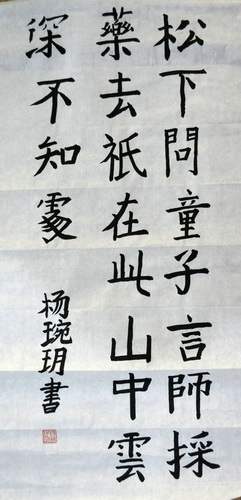 松下問童子言師採
藥去祇在此山中雲
深不知處
杨琬玥書